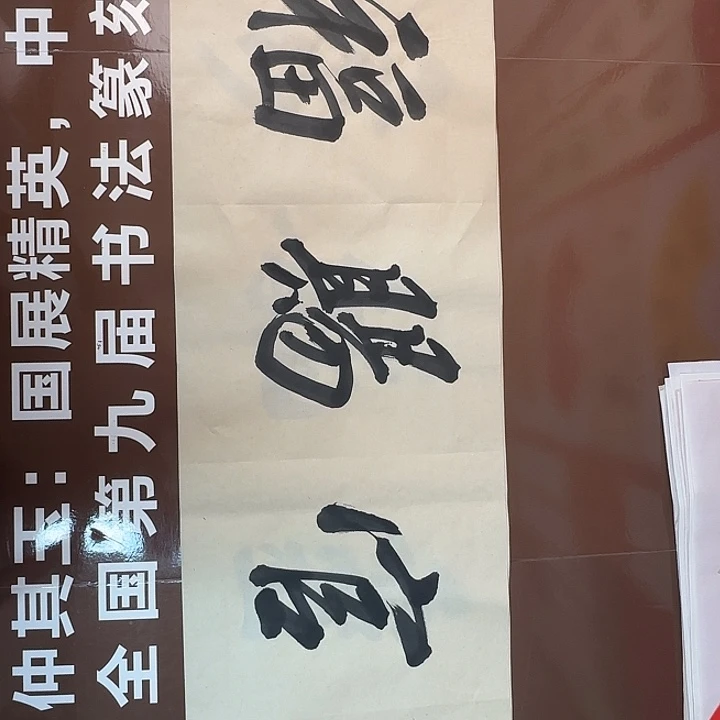 仲其玉：国展精英，中
全国第九届书法篆
官賜福